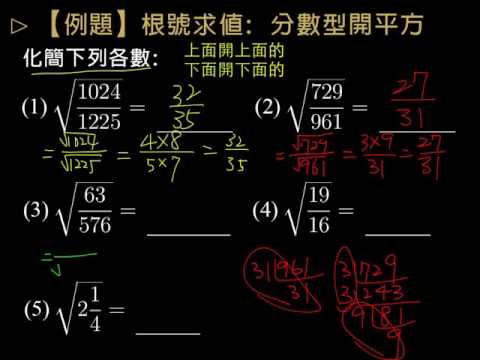 ▷【例題】根號求值：分數型開平方
化簡下列各數：
上面開上面的
下面開下面的
(1) √(1024/1225) = 32/35
= √1024/√1225 = 4×8/5×7 = 32/35
(2) √(729/961) = 27/31
= √729/√961 = 3×9/31 = 27/31
(3) √(63/576) = ______
= √
(4) √(19/16) = ______
(5) √(2 1/4) = ______
31|961
31
3|729
3|243
9|81
9